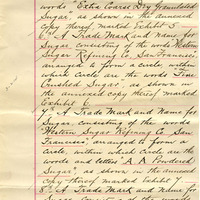 words "Extra Coarse Dry Granulated
Sugar, as shown in the annexed
copy thereof, marked Exhibit 5.
6th A Trade Mark and Name for
Sugar consisting of the words Western
Sugar Refining Co. San Francisco,
arranged to form a circle, within
which circle are the words "Fine
Crushed Sugar", as shown in
the annexed copy thereof, marked
Exhibit 6.
7th A Trade Mark and Name for
Sugar, consisting of the words
"Western Sugar Refining Co. San
Francisco", arranged to form a
circle, within which circle are the
words and letters "A. A. Powdered
Sugar", as shown in the annexed
copy thereof marked Exhibit 7
8th A Trade Mark and Name for
Sugar consisting of the words